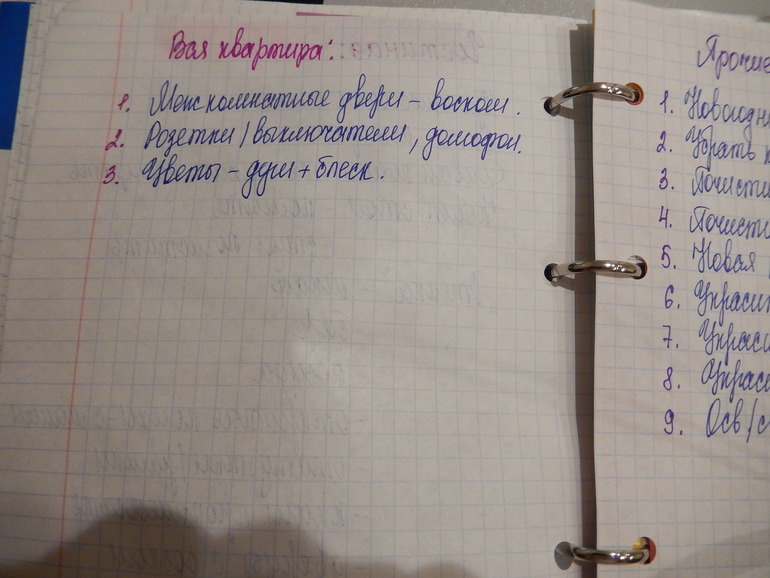 Вся квартира:
1. Межкомнатные двери – воском.
2. Розетки/выключатели, домофон.
3. Цветы – душ + блеск.
Прочие
1. Новогодн
2. Убрать
3. Почисти
4. Почисти
5. Новая
6. Украсит
7. Украси
8. Украс
9. Осв/с